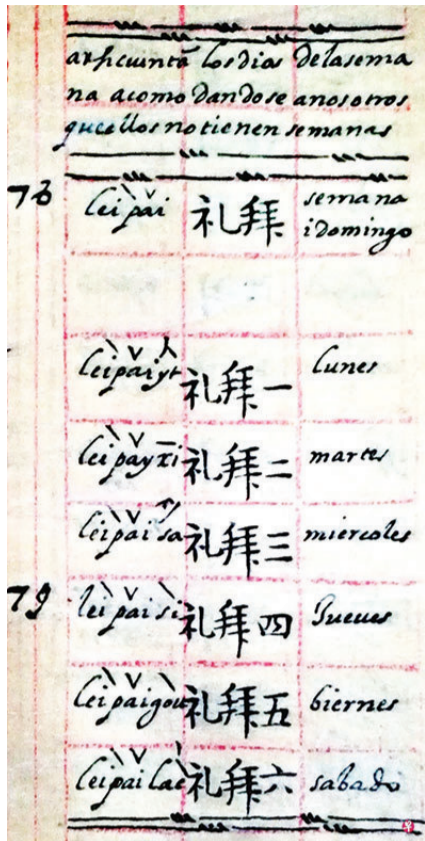 asi cuintā los dias dela sema
na acomodandose anosotros
que ellos no tienen semanas
73 leipai 礼拜 semana
i Domingo
leipaiyt 礼拜一 lunes
leipayxi 礼拜二 martes
leipaisa 礼拜三 miercoles
79 leipaisi 礼拜四 Jueues
leipaigou 礼拜五 biernes
leipailac 礼拜六 sabado